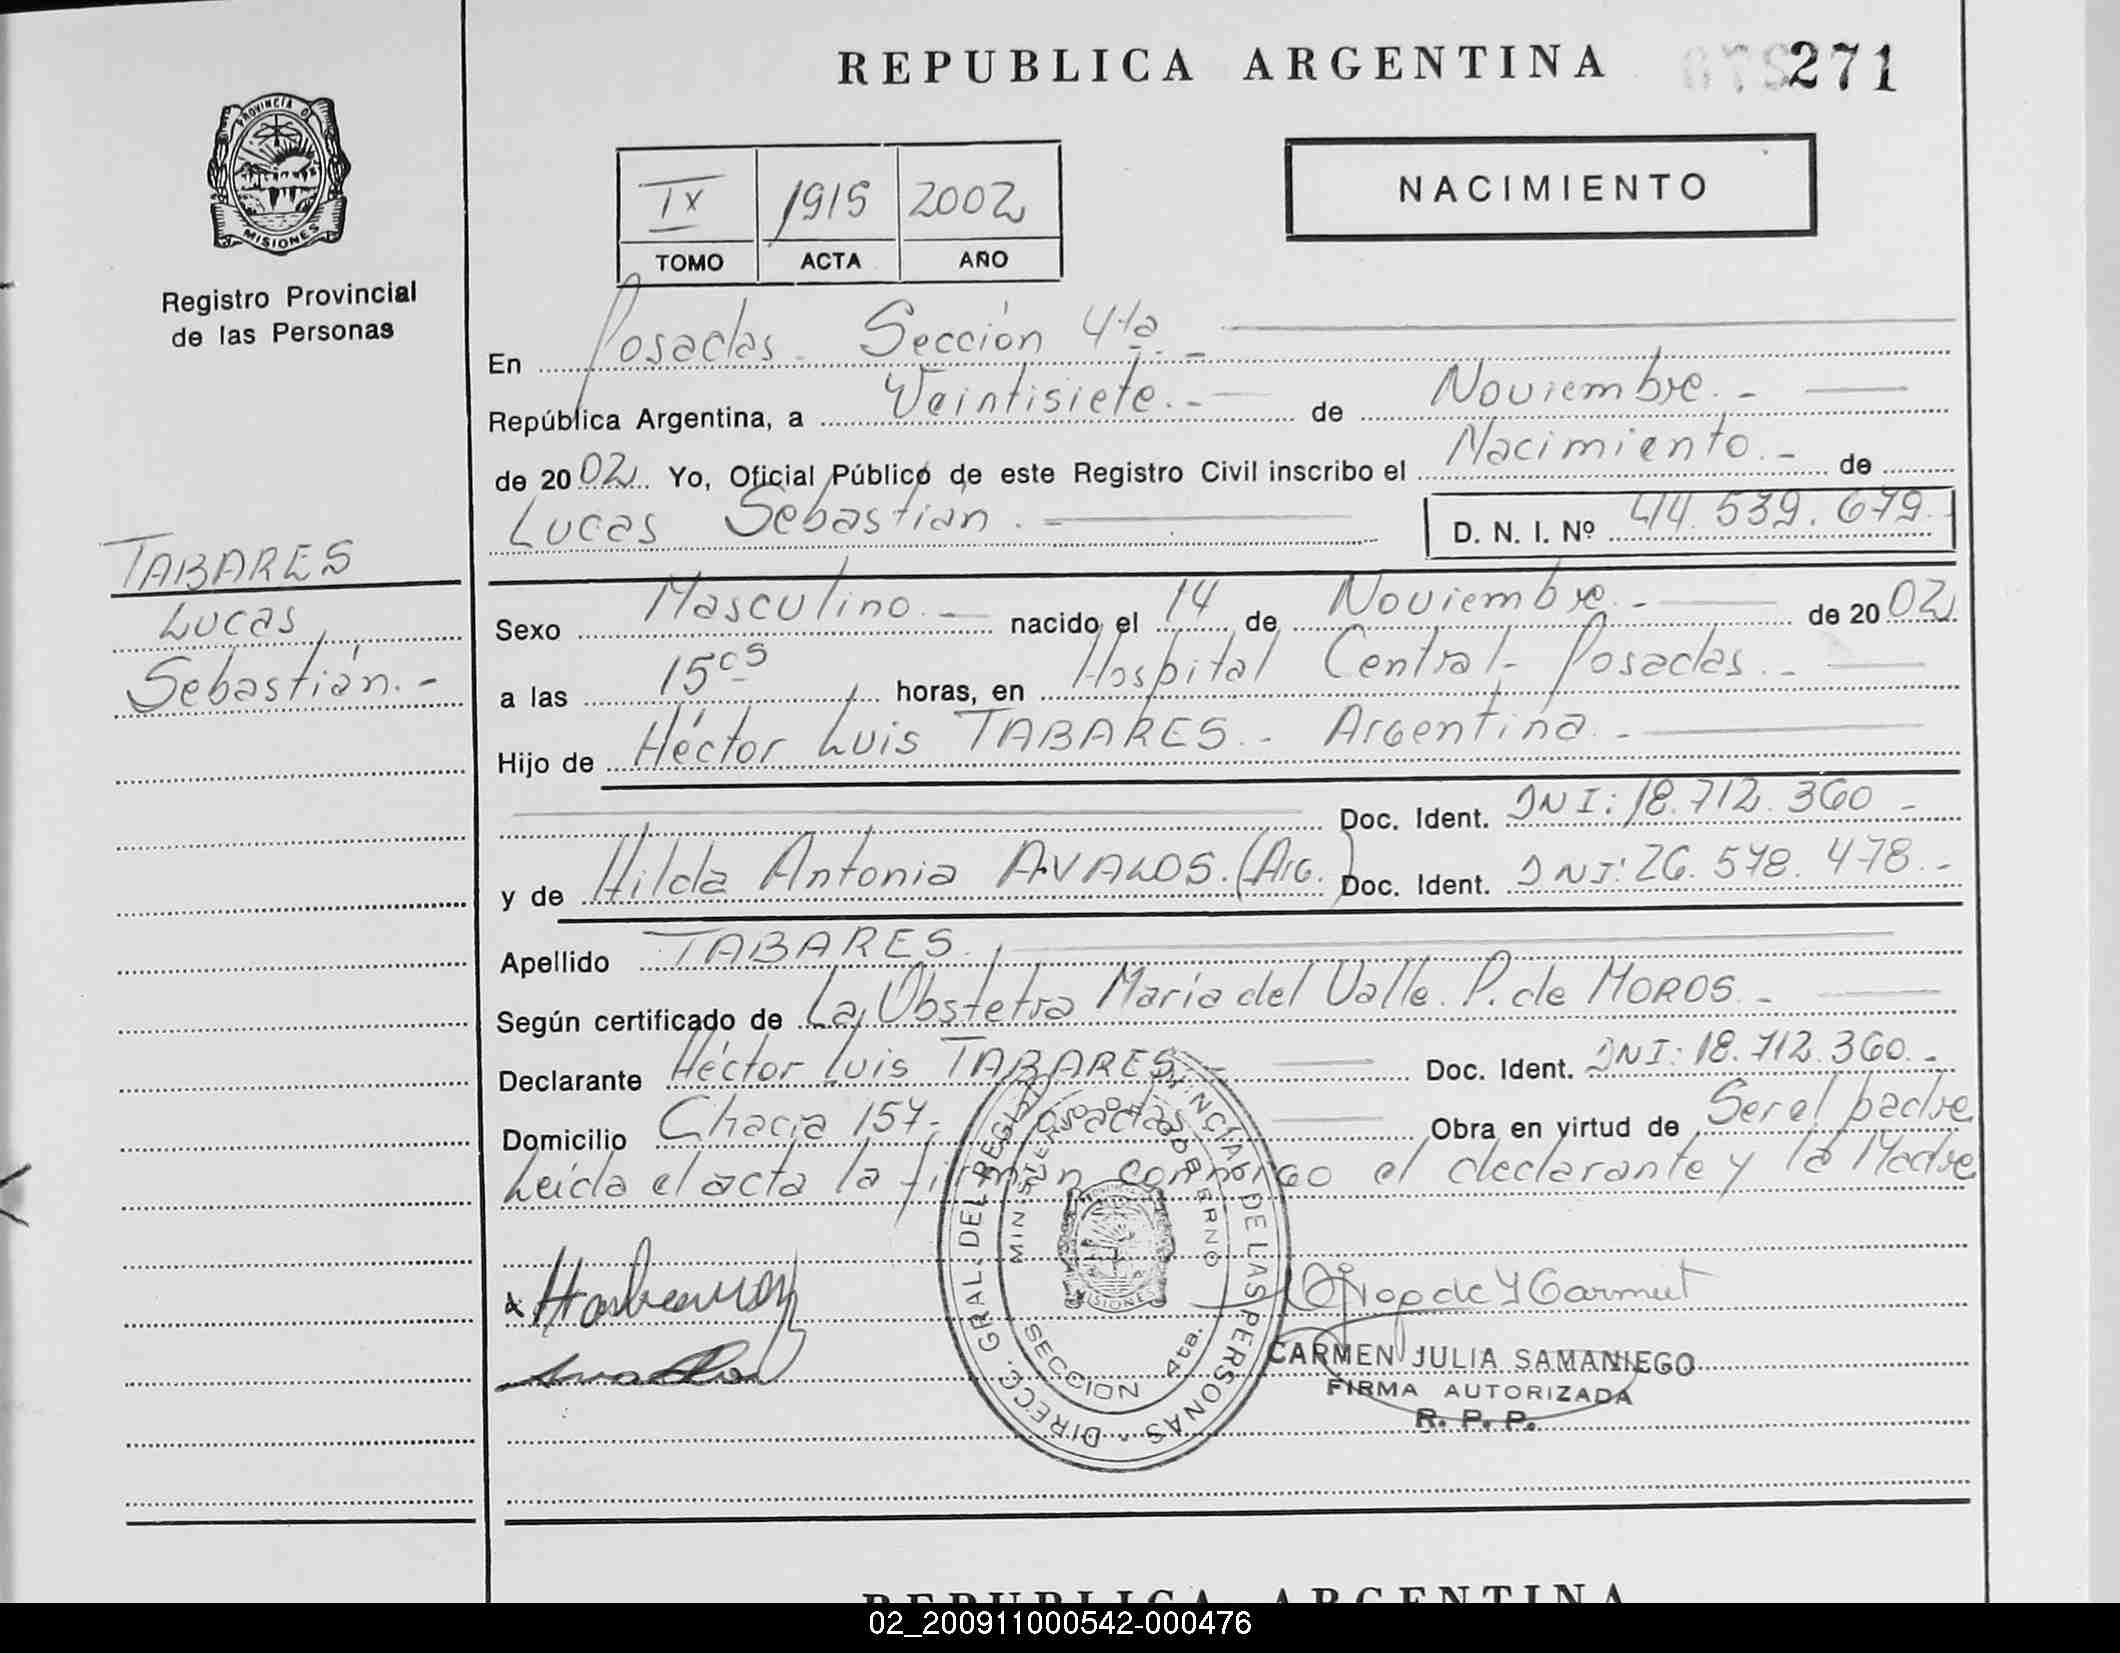 REPUBLICA ARGENTINA 271
PROVINCIA D
MISIONES
Registro Provincial
de las Personas
NACIMIENTO
IX 1915 2002
TOMO ACTA AÑO
En Posadas - Sección 4ta. -
República Argentina, a Veintisiete. - de Noviembre. -
de 2002 Yo, Oficial Público de este Registro Civil inscribo el Nacimiento. - de
Lucas Sebastián. - D. N. I. Nº 44.539.679
TABARES
Lucas
Sebastián. -
Sexo Masculino. - nacido el 14 de Noviembre - de 2002
a las 15 05 horas, en Hospital Central - Posadas. -
Hijo de Héctor Luis TABARES. - Argentina. -
Doc. Ident. DNI: 18.712.360 -
y de Hilda Antonia AVALOS. (Arg.) Doc. Ident. DNI: 26.578.478. -
Apellido TABARES.
Según certificado de La Obstetra María del Valle P. de MOROS -
Declarante Héctor Luis TABARES. - Doc. Ident. DNI: 18.712.360. -
Domicilio Chacra 157 - Posadas Obra en virtud de Ser el padre
Leída el acta la firman conmigo el declarante y la Madre
DIRECC. GRAL. DEL REG. PROVINCIAL DE LAS PERSONAS -
MINISTERIO DE GOBIERNO
MISIONES
SECCION 4ta.
CARMEN JULIA SAMANIEGO
FIRMA AUTORIZADA
R. P. P.
REPUBLICA ARGENTINA
02_200911000542-000476